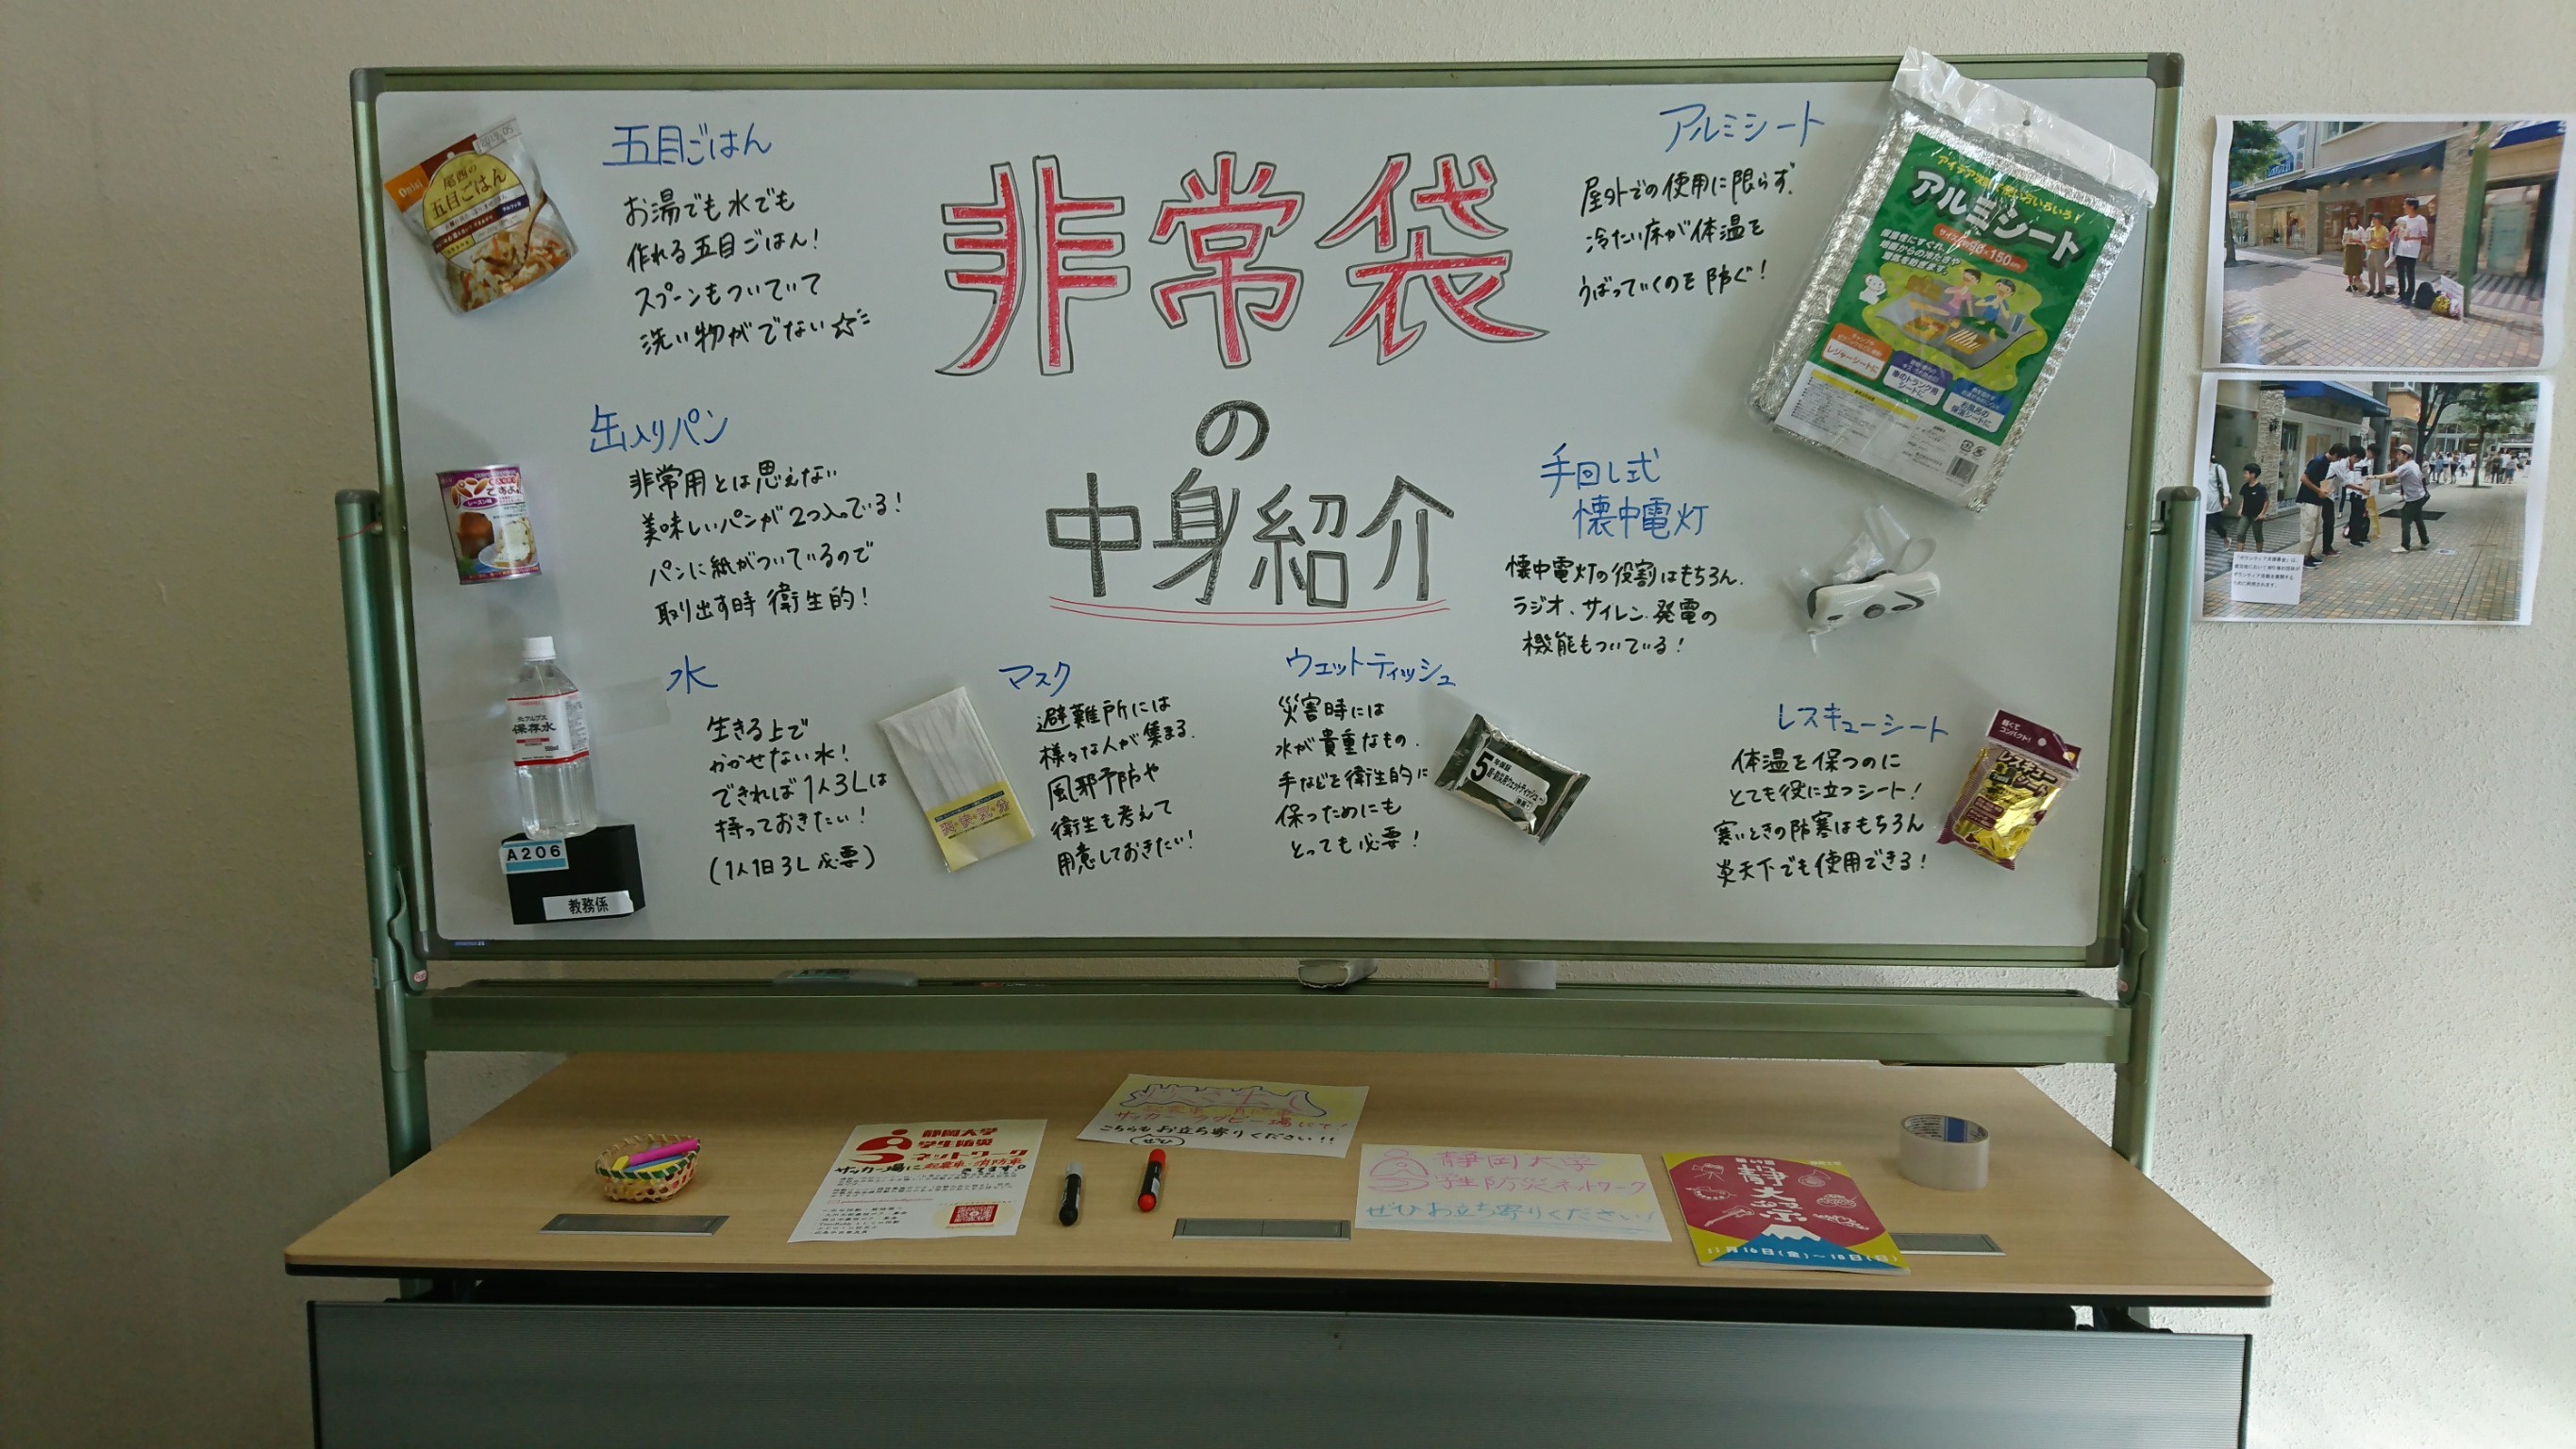 非常袋
の
中身紹介
五目ごはん
お湯でも水でも
作れる五目ごはん!
スプーンもついていて
洗い物がでない☆
Onisi
尾西の
五目ごはん
缶入りパン
非常用とは思えない
美味しいパンが2つ入っている!
パンに紙がついているので
取り出す時 衛生的!
パン
ですよ!
水
生きる上で
かかせない水!
できれば1人3Lは
持っておきたい!
(1人1日3L必要)
北アルプス
保存水
A206
教務係
マスク
避難所には
様々な人が集まる.
風邪予防や
衛生も考えて
用意しておきたい!
ウェットティッシュ
災害時には
水が貴重なもの.
手などを衛生的に
保つためにも
とっても必要!
アルミシート
屋外での使用に限らず.
冷たい床が体温を
うばっていくのを防ぐ!
アルミシート
レジャーシートに
車のトランク用
シートに
お風呂の
保温シートに
手回し式
懐中電灯
懐中電灯の役割はもちろん.
ラジオ、サイレン.発電の
機能もついている!
レスキューシート
体温を保つのに
とても役に立つシート!
寒いときの防寒はもちろん
炎天下でも使用できる!
軽くて
コンパクト!
レスキュー
シート
静岡大学
学生防災
ネットワーク
サッカー場に起震車・消防車
きてます。
サッカー・ラグビー場にて!
こちらもぜひお立ち寄りください!!
静岡大学
学生防災ネットワーク
ぜひお立ち寄りください!
静大祭
11月16日(金)～18日(日)